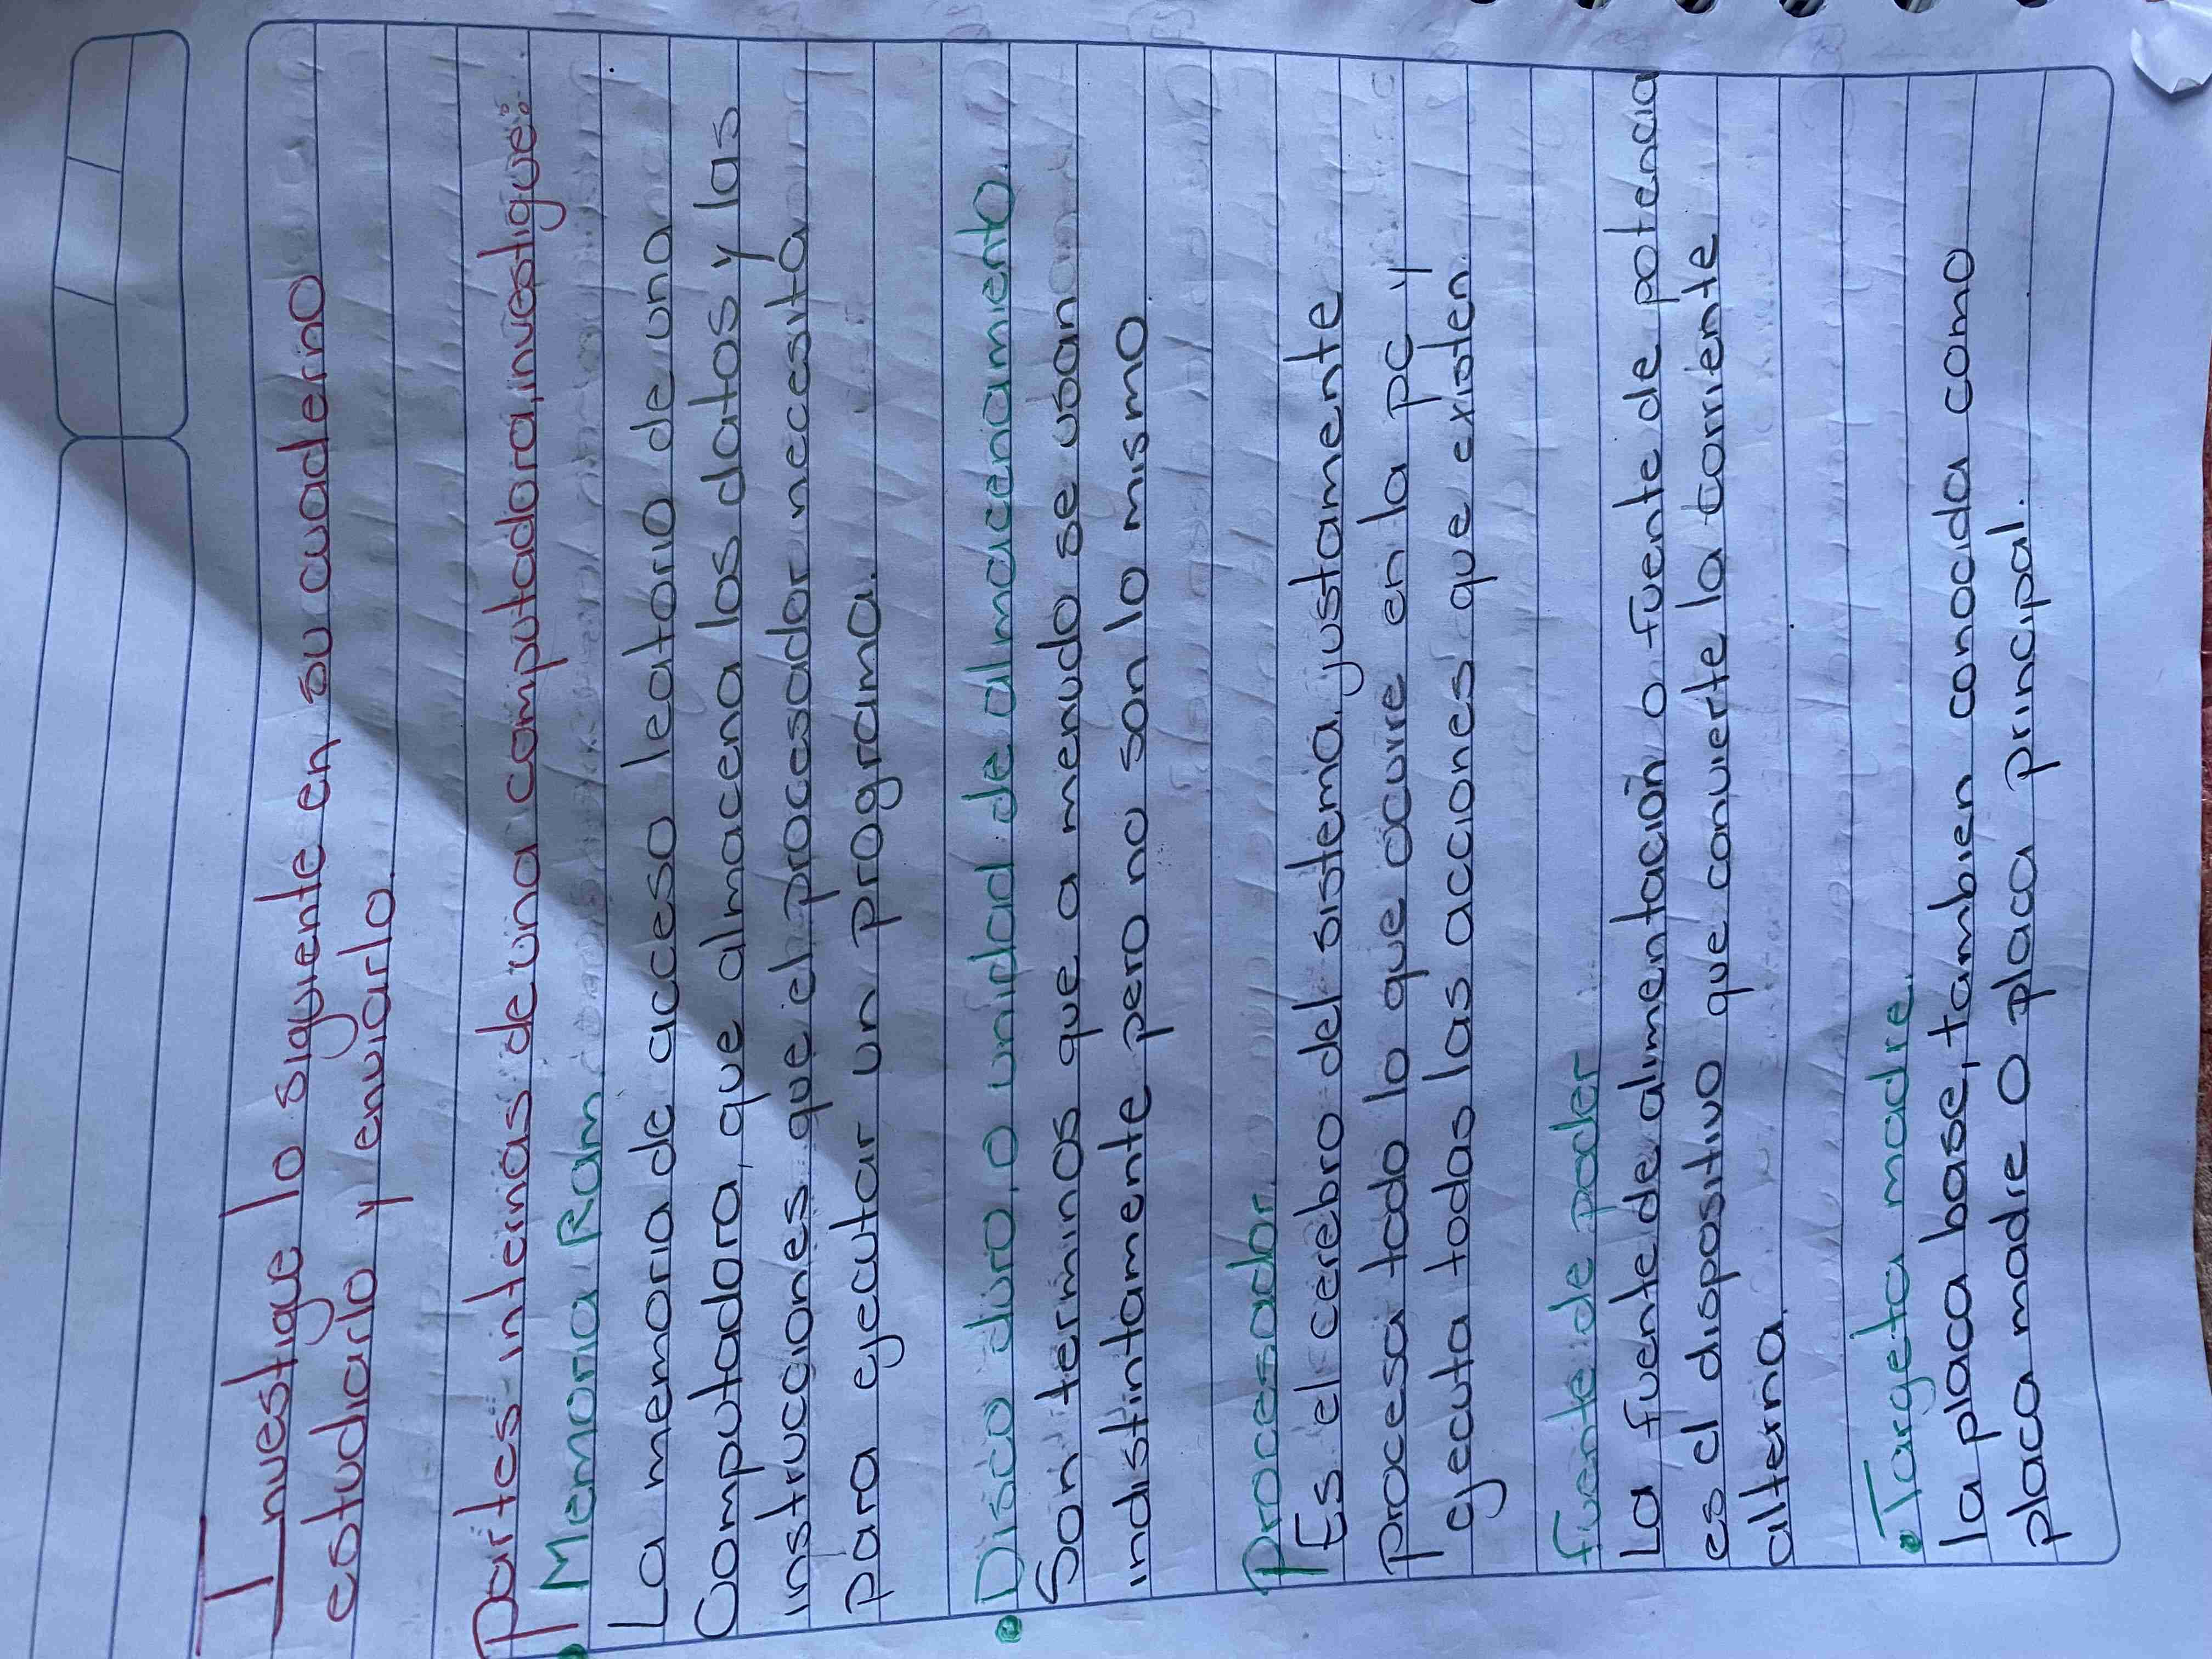 Investigue lo siguiente en su cuaderno
estudiarlo y enviarlo.
Partes internas de una computadora, investigue:
• Memoria Ram.
La memoria de acceso leatorio de una
Computadora, que almacena los datos y las
instrucciones que el procesador necesita
para ejecutar un programa.
• Disco duro, o unidad de almacenamiento.
Son terminos que a menudo se usan
indistintamente pero no son lo mismo
Procesador.
Es el cerebro del sistema, justamente
procesa todo lo que ocurre en la pc y
ejecuta todas las acciones que existen.
fuente de poder
La fuente de alimentación o fuente de potencia
es el dispositivo que convierte la corriente
alterna.
• Targeta madre.
la placa base, tambien conocida como
placa madre o placa principal.